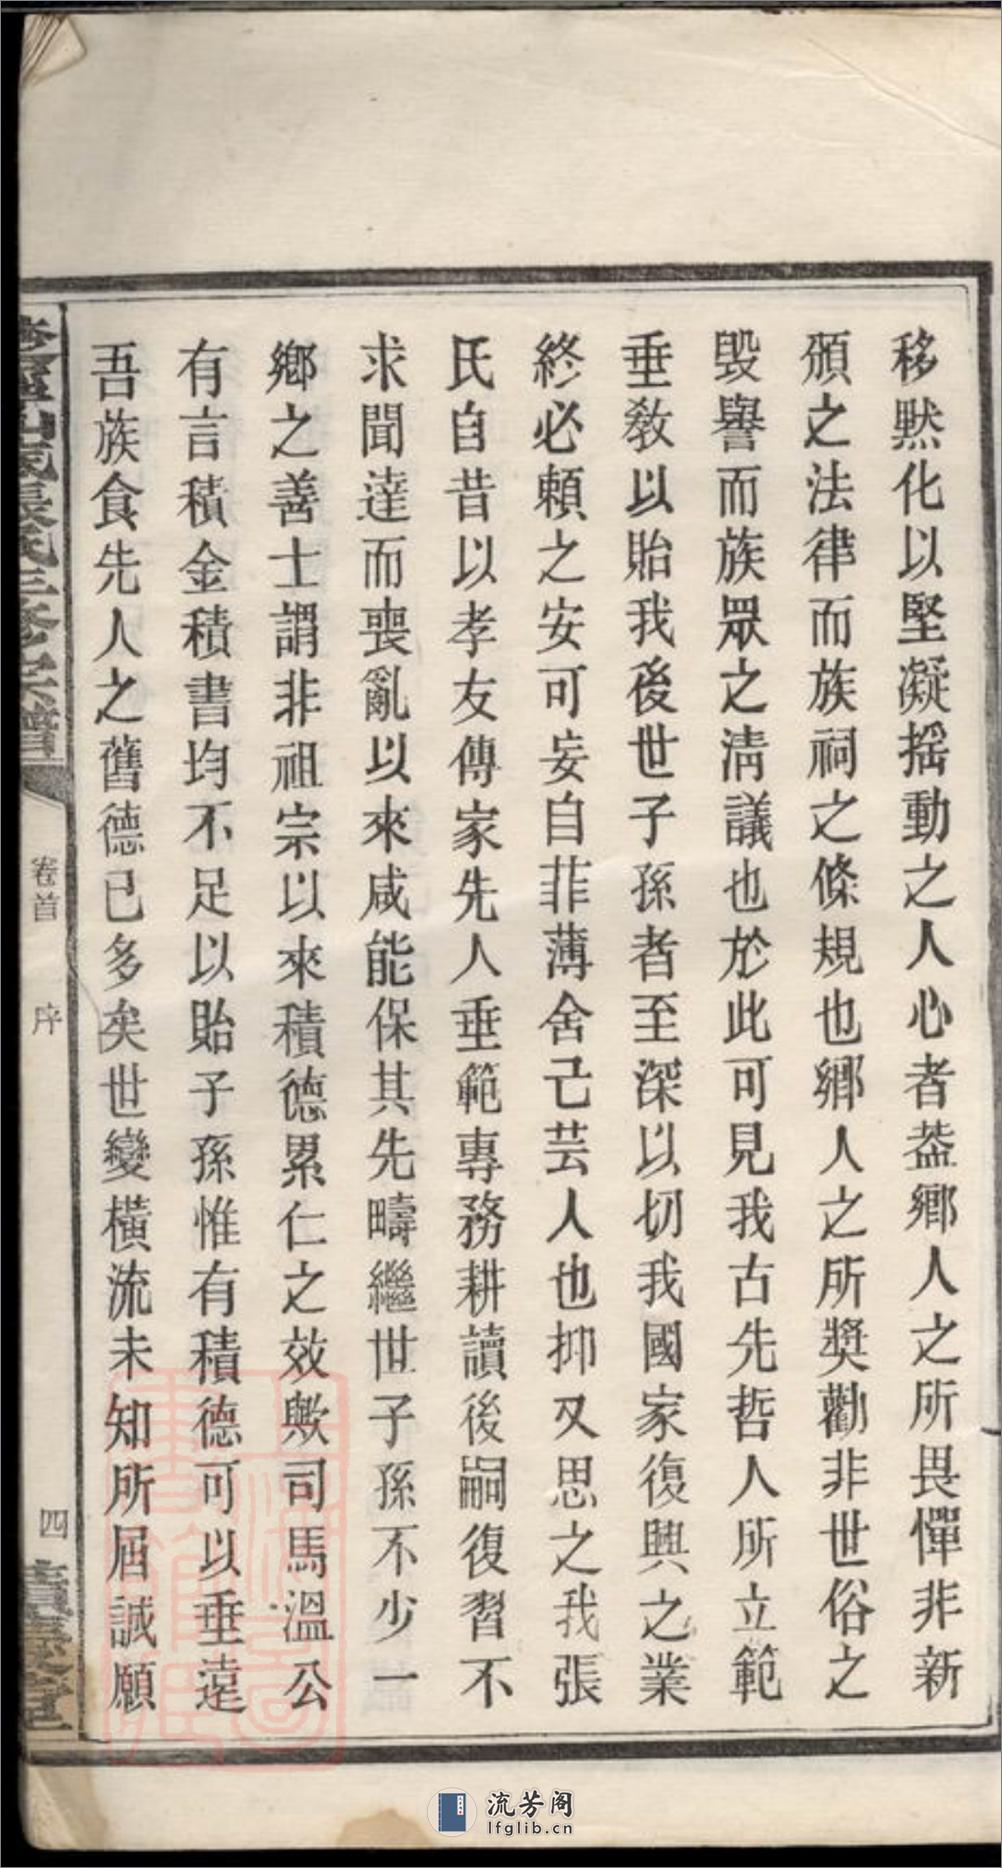 移黙化以堅凝揺動之人心者葢鄉人之所畏憚非新
頒之法律而族祠之條規也鄉人之所獎勸非世俗之
毀譽而族眾之清議也於此可見我古先哲人所立範
垂敎以貽我後世子孫者至深以切我國家復興之業
終必賴之安可妄自菲薄舍己芸人也抑又思之我張
氏自昔以孝友傳家先人垂範專務耕讀後嗣復習不
求聞達而喪亂以來咸能保其先疇繼世子孫不少一
鄉之善士謂非祖宗以來積德累仁之效歟司馬溫公
有言積金積書均不足以貽子孫惟有積德可以垂遠
吾族食先人之舊德已多矣世變橫流未知所屆誠願
卷首 序
四
流芳阁
lfglib.cn